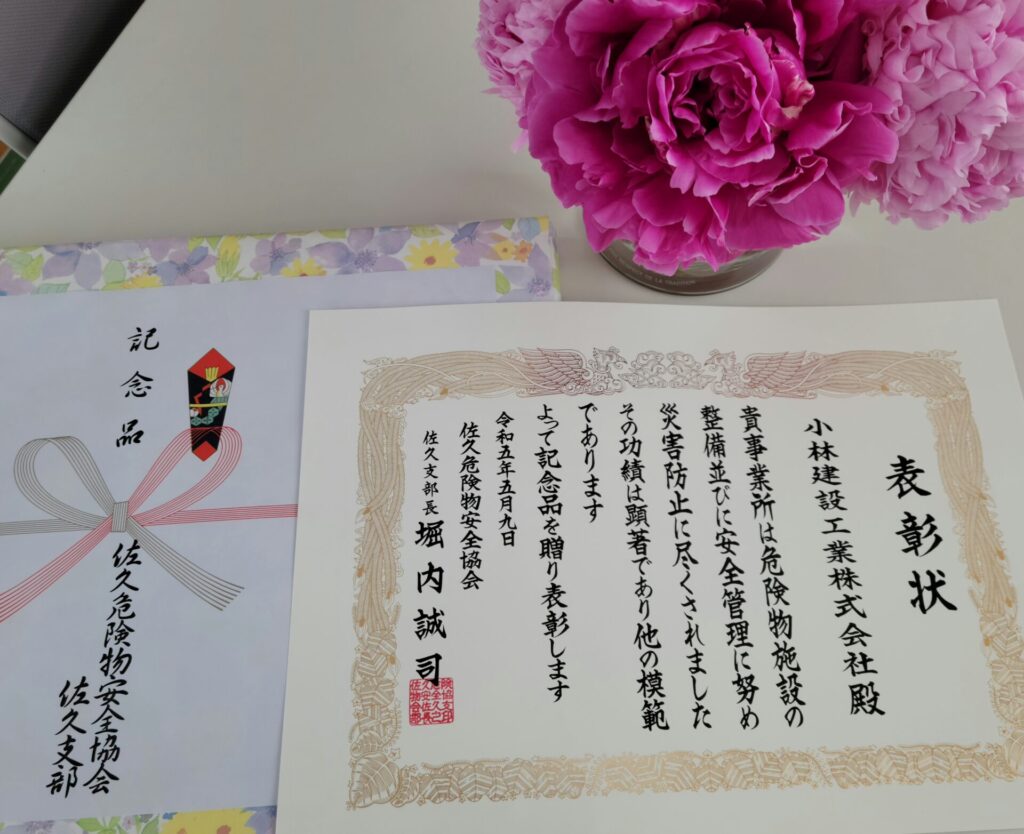 表彰状
小林建設工業株式会社殿
貴事業所は危険物施設の
整備並びに安全管理に努め
災害防止に尽くされました
その功績は顕著であり他の模範
であります
よって記念品を贈り表彰します
令和五年五月九日
佐久危険物安全協会
佐久支部長 堀内誠司
記念品
佐久危険物安全協会
佐久支部
DE LA TRADITION